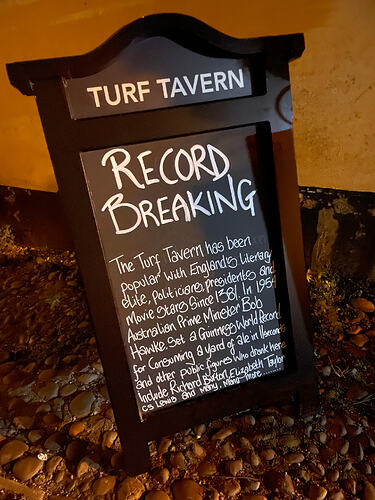 TURF TAVERN
RECORD
BREAKING
The Turf Tavern has been
popular with England's Literary
elite, Politicians, Presidents and
Movie Stars Since 1381. In 1954
Australian Prime Minister Bob
Hawke Set a Guinness World Record
for Consuming a yard of ale in 11seconds
and other public figures who drank here
Include Richard Burton, Elizabeth Taylor
CS Lewis and Many, Many more......